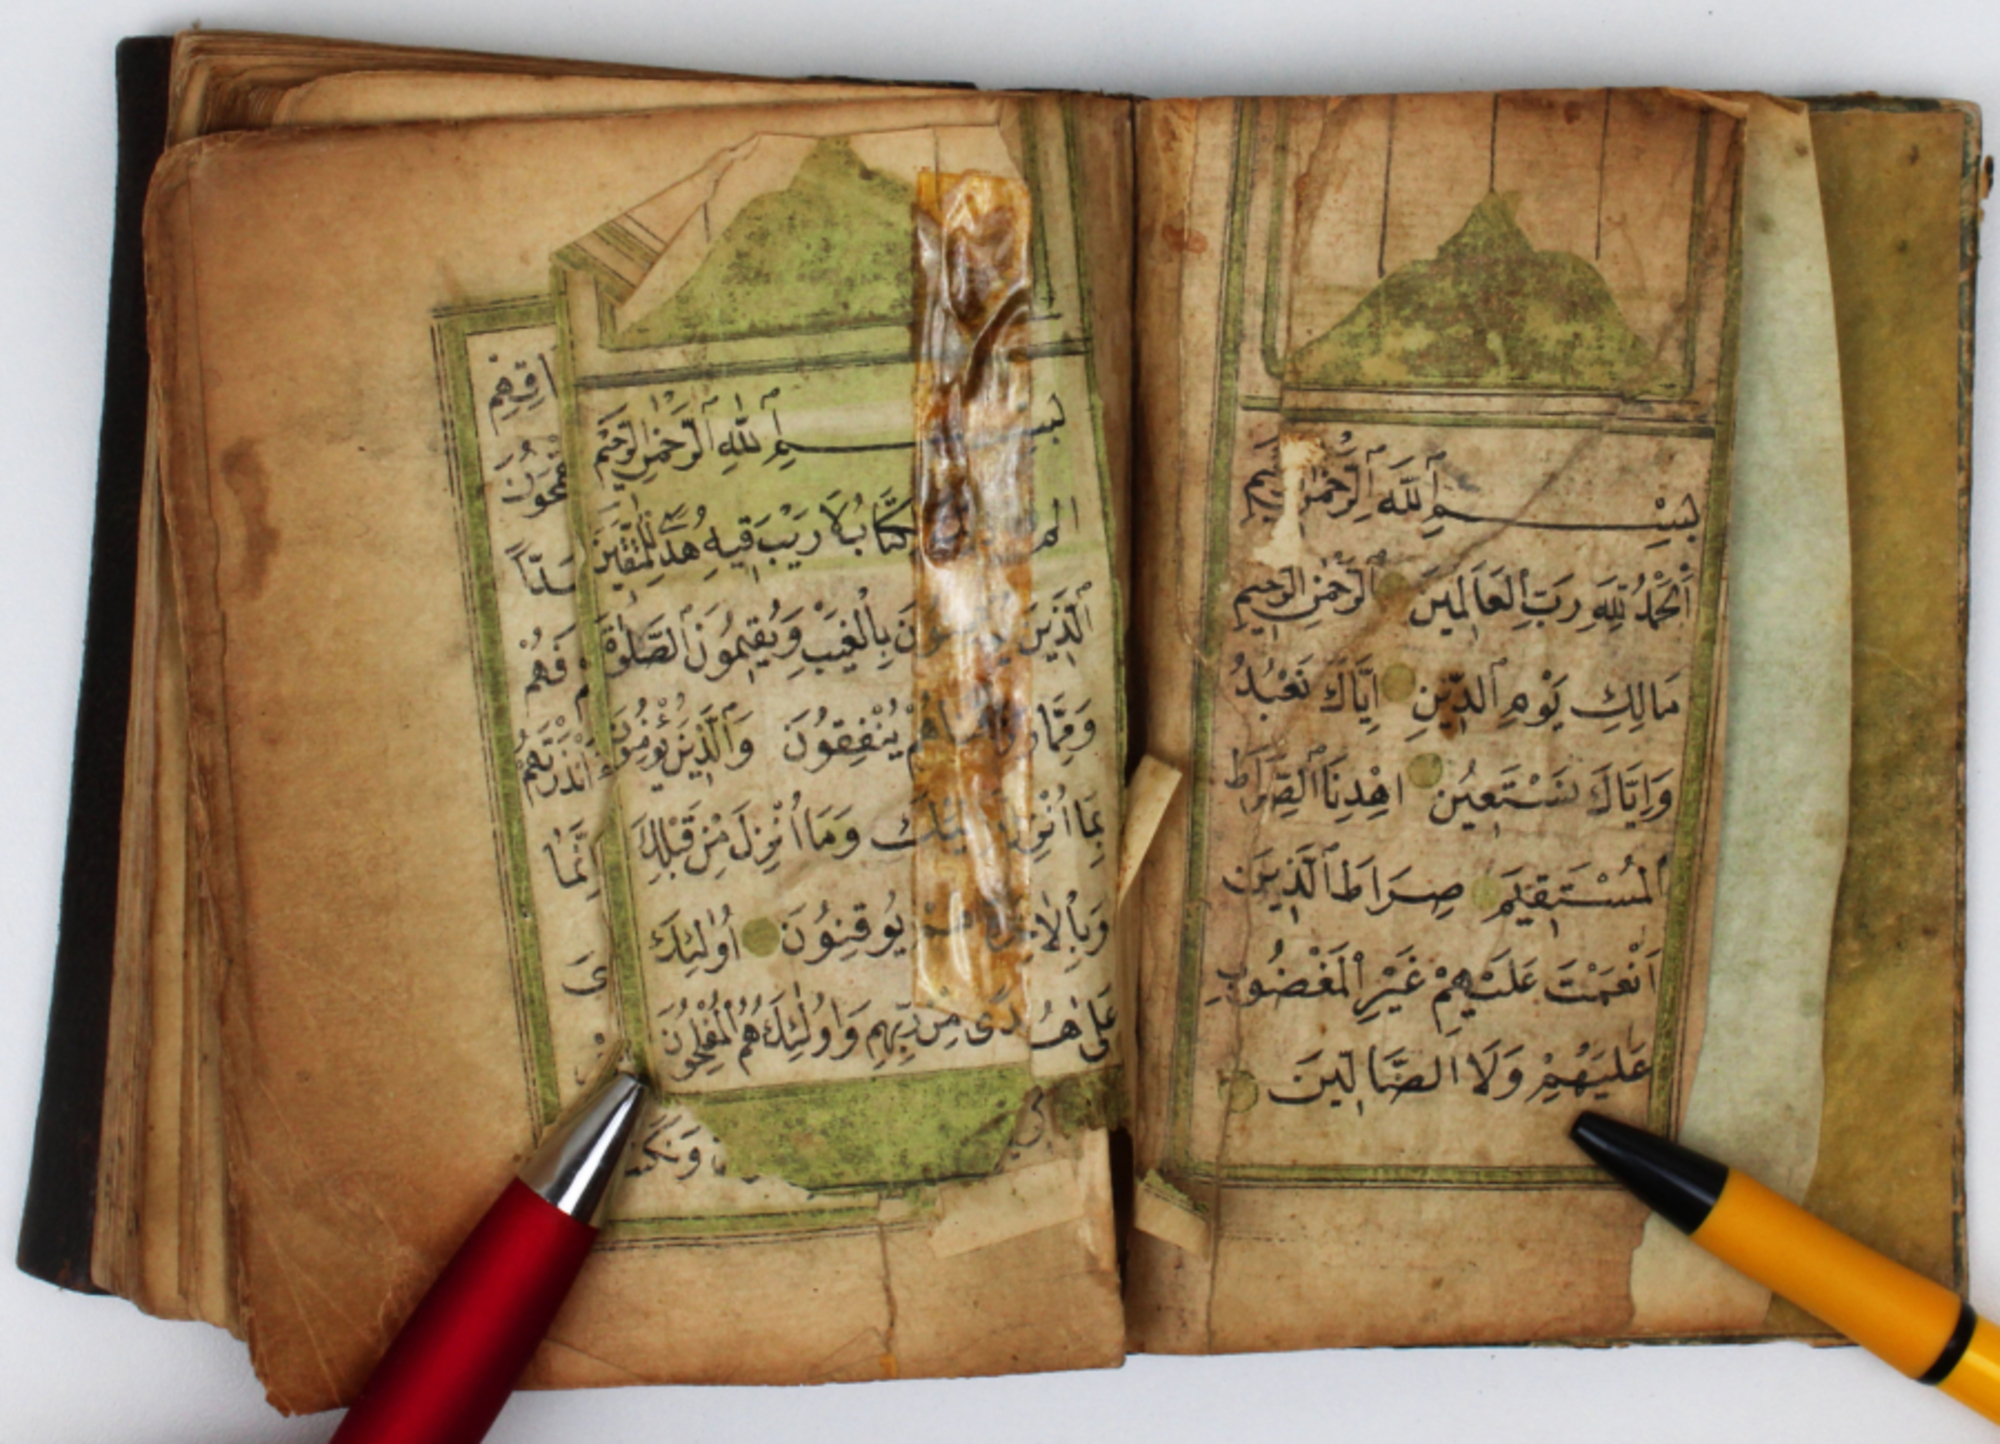 بِسْــــمِ اللّٰهِ الرَّحْمٰنِ الرَّحِيمِ
اَلْحَمْدُ لِلّٰهِ رَبِّ الْعَالَمِينَ الرَّحْمٰنِ الرَّحِيمِ
مَالِكِ يَوْمِ الدِّينِ اِيَّاكَ نَعْبُدُ
وَاِيَّاكَ نَسْتَعِينُ اِهْدِنَا الصِّرَاطَ
الْمُسْتَقِيمَ صِرَاطَ الَّذِينَ
اَنْعَمْتَ عَلَيْهِمْ غَيْرِ الْمَغْضُوبِ
عَلَيْهِمْ وَلَا الضَّالِّينَ
بِســـمِ اللّٰهِ الرَّحْمٰنِ الرَّحِيمِ
لَا رَيْبَ فِيهِ هُدًى لِلْمُتَّقِينَ
الَّذِينَ بِالْغَيْبِ وَيُقِيمُونَ الصَّلٰوةَ
وَمِمَّا يُنْفِقُونَ وَالَّذِينَ يُؤْمِنُونَ
بِمَا اُنْزِلَ وَمَا اُنْزِلَ مِنْ قَبْلِكَ
وَبِالْاٰخِرَةِ يُوقِنُونَ اُولٰئِكَ
عَلٰى هُدًى مِنْ رَبِّهِمْ وَاُولٰئِكَ هُمُ الْمُفْلِحُونَ
سَدًّا
فَهُمْ
ءَاَنْذَرْتَهُمْ
اِنَّمَا